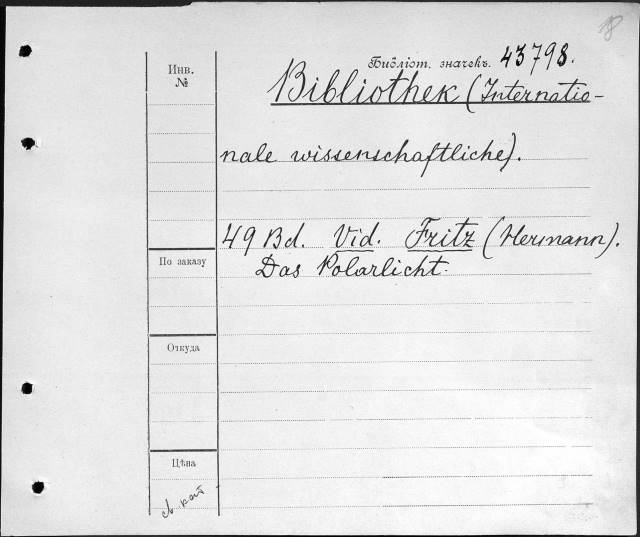 18
Библіот. значекъ. 43798.
Инв.
№
Bibliothek (Internatio-
nale wissenschaftliche).
49 Bd. Vid. Fritz (Hermann).
Das Polarlicht.
По заказу
Откуда
Цѣна